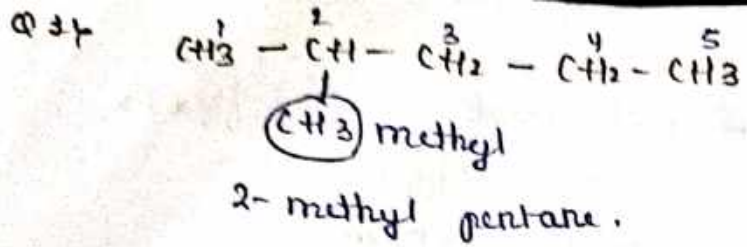 1 2 3 4 5
CH3 - CH - CH2 - CH2 - CH3
CH3 methyl
2- methyl pentane.